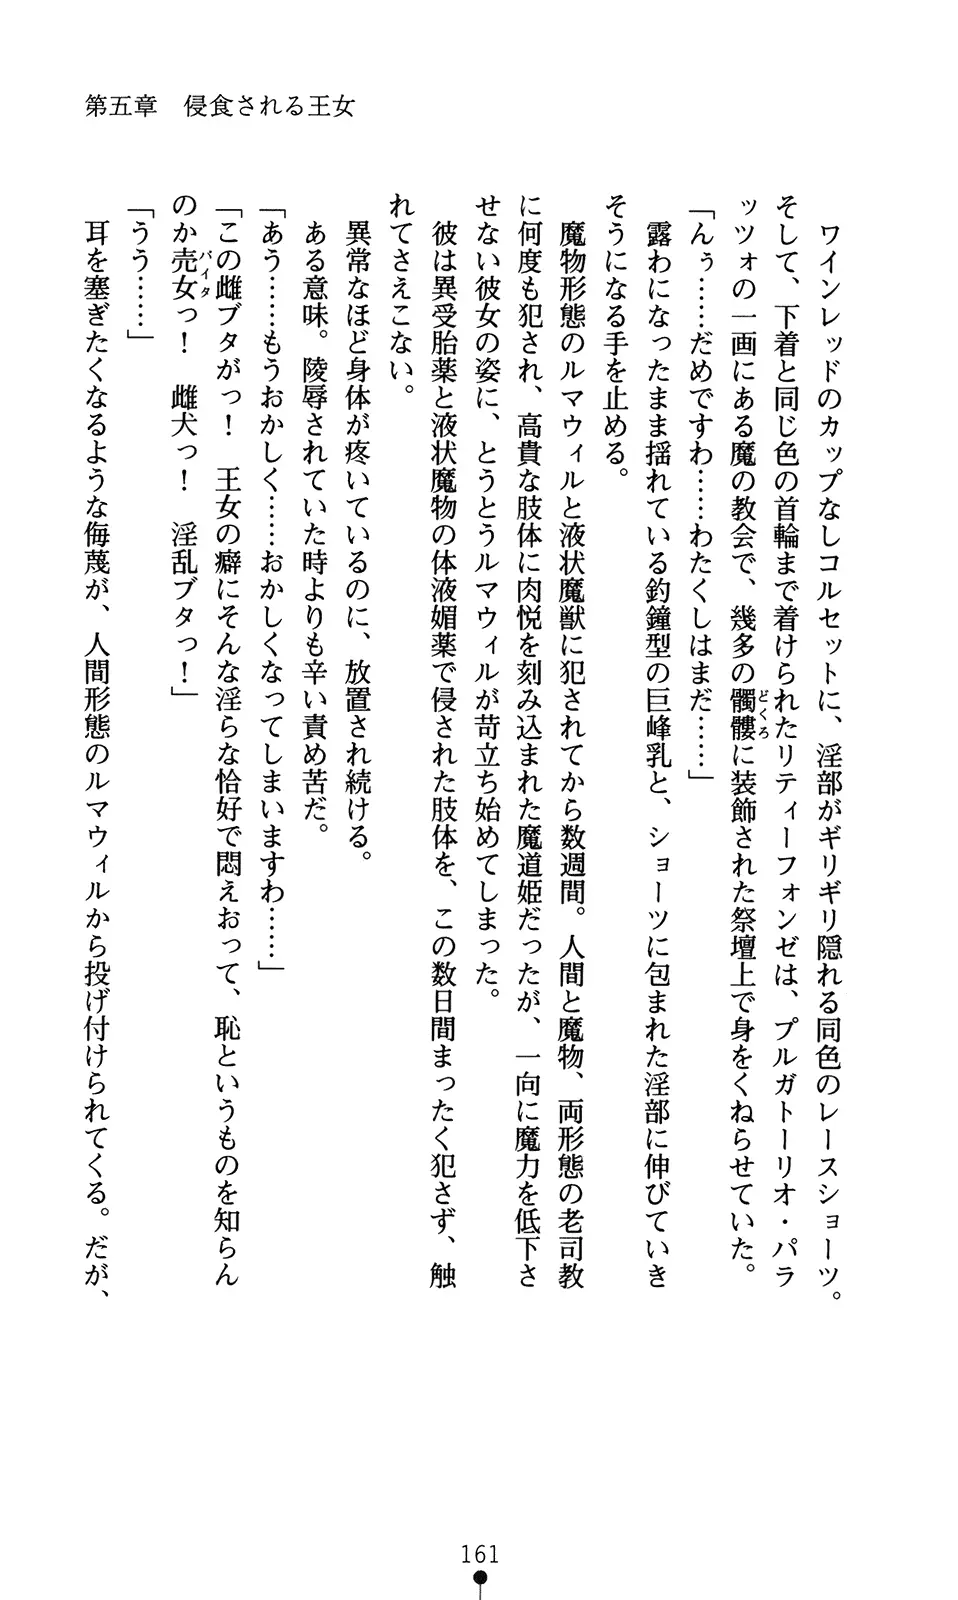 第五章　侵食される王女
ワインレッドのカップなしコルセットに、淫部がギリギリ隠れる同色のレースショーツ。
そして、下着と同じ色の首輪まで着けられたリティーフォンゼは、プルガトーリオ・パラ
ッツォの一画にある魔の教会で、幾多の髑髏に装飾された祭壇上で身をくねらせていた。
どくろ
「んぅ……だめですわ……わたくしはまだ……」
露わになったまま揺れている釣鐘型の巨峰乳と、ショーツに包まれた淫部に伸びていき
そうになる手を止める。
魔物形態のルマウィルと液状魔獣に犯されてから数週間。人間と魔物、両形態の老司教
に何度も犯され、高貴な肢体に肉悦を刻み込まれた魔道姫だったが、一向に魔力を低下さ
せない彼女の姿に、とうとうルマウィルが苛立ち始めてしまった。
彼は異受胎薬と液状魔物の体液媚薬で侵された肢体を、この数日間まったく犯さず、触
れてさえこない。
異常なほど身体が疼いているのに、放置され続ける。
ある意味。陵辱されていた時よりも辛い責め苦だ。
「あう……もうおかしく……おかしくなってしまいますわ……」
「この雌ブタがっ！　王女の癖にそんな淫らな恰好で悶えおって、恥というものを知らん
のか売女っ！　雌犬っ！　淫乱ブタっ！」
バイタ
「うう……」
耳を塞ぎたくなるような侮蔑が、人間形態のルマウィルから投げ付けられてくる。だが、
161